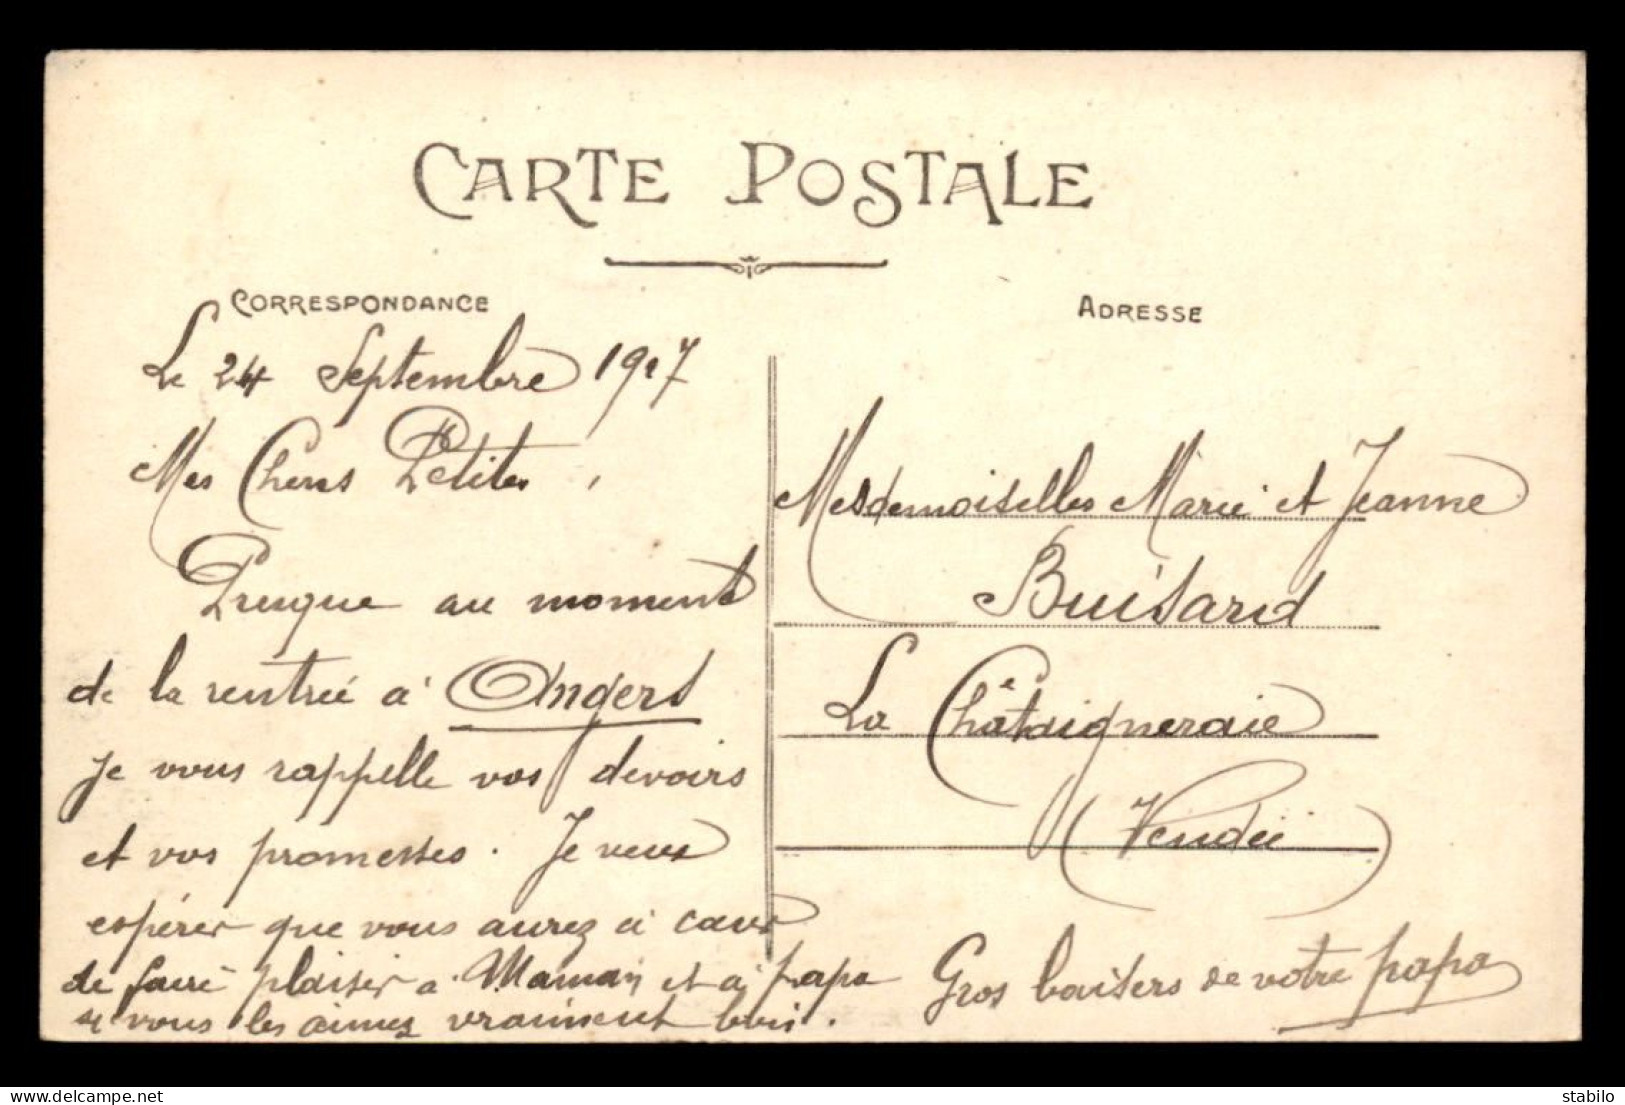 CARTE POSTALE
CORRESPONDANCE
Le 24 Septembre 1917
Mes Cheres Petites,
Presque au moment
de la rentrée à Angers
je vous rappelle vos devoirs
et vos promesses. Je veux
espérer que vous aurez à cœur
de faire plaisir a Maman et à papa
si vous les aimez vraiment bien.
ADRESSE
Mesdemoiselles Marie et Jeanne
Buisard
La Châtaigneraie
(Vendée)
Gros baisers de votre papa
www.delcampe.net
stabilo